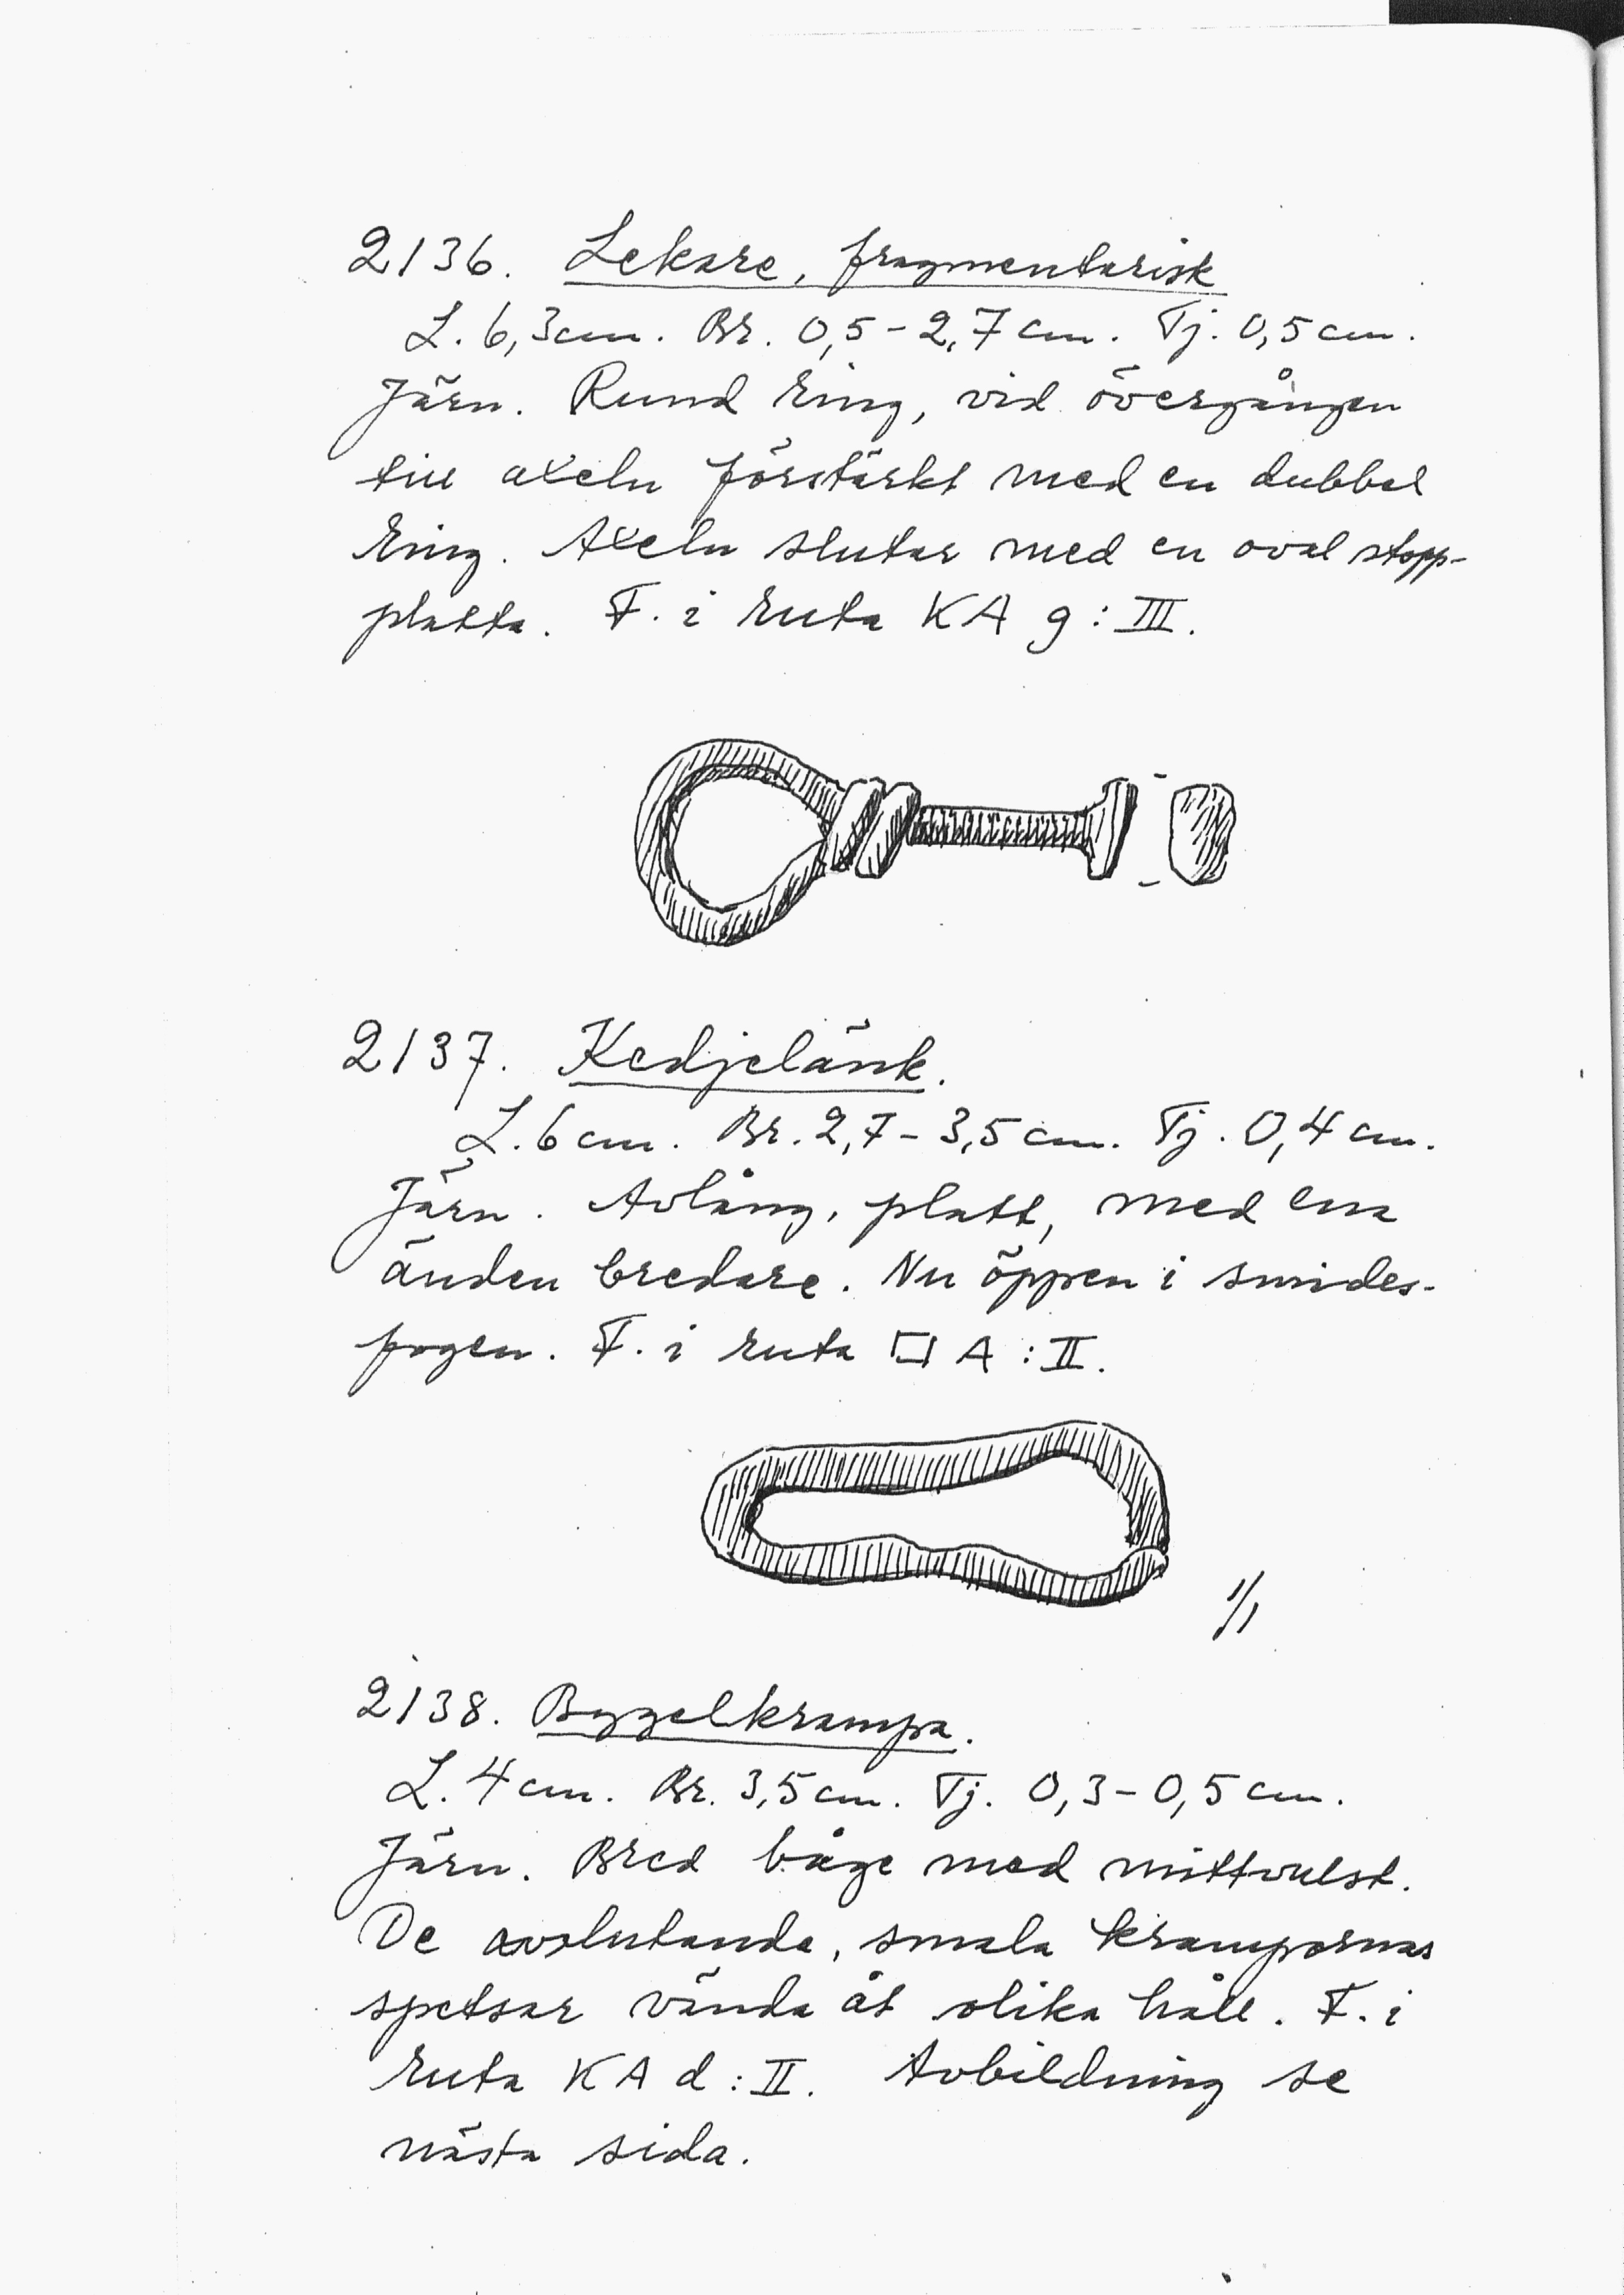 2136. Lekare, fragmentarisk
L. 6,3cm. Br. 0,5-2,7cm. Tj. 0,5cm.
Järn. Rund ring, vid övergången
till axeln förstärkt med en dubbel
ring. Axeln slutar med en oval stopp-
platta. F. i ruta KA g:III.
2137. Kedjelänk.
L. 6cm. Br. 2,7-3,5cm. Tj. 0,4cm.
Järn. Avlång, platt, med ena
änden bredare. Nu öppen i smides-
fogen. F. i ruta □ A:II.
1/1
2138. Bygelkrampa.
L. 4cm. Br. 3,5cm. Tj. 0,3-0,5cm.
Järn. Bred båge med mittvulst.
De avslutande, smala krampornas
spetsar vända åt olika håll. F. i
ruta KA d:II. Avbildning se
nästa sida.